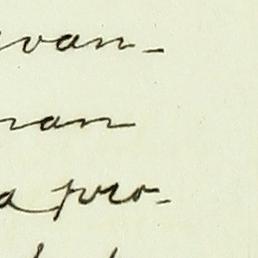 van-
nan
a pro-